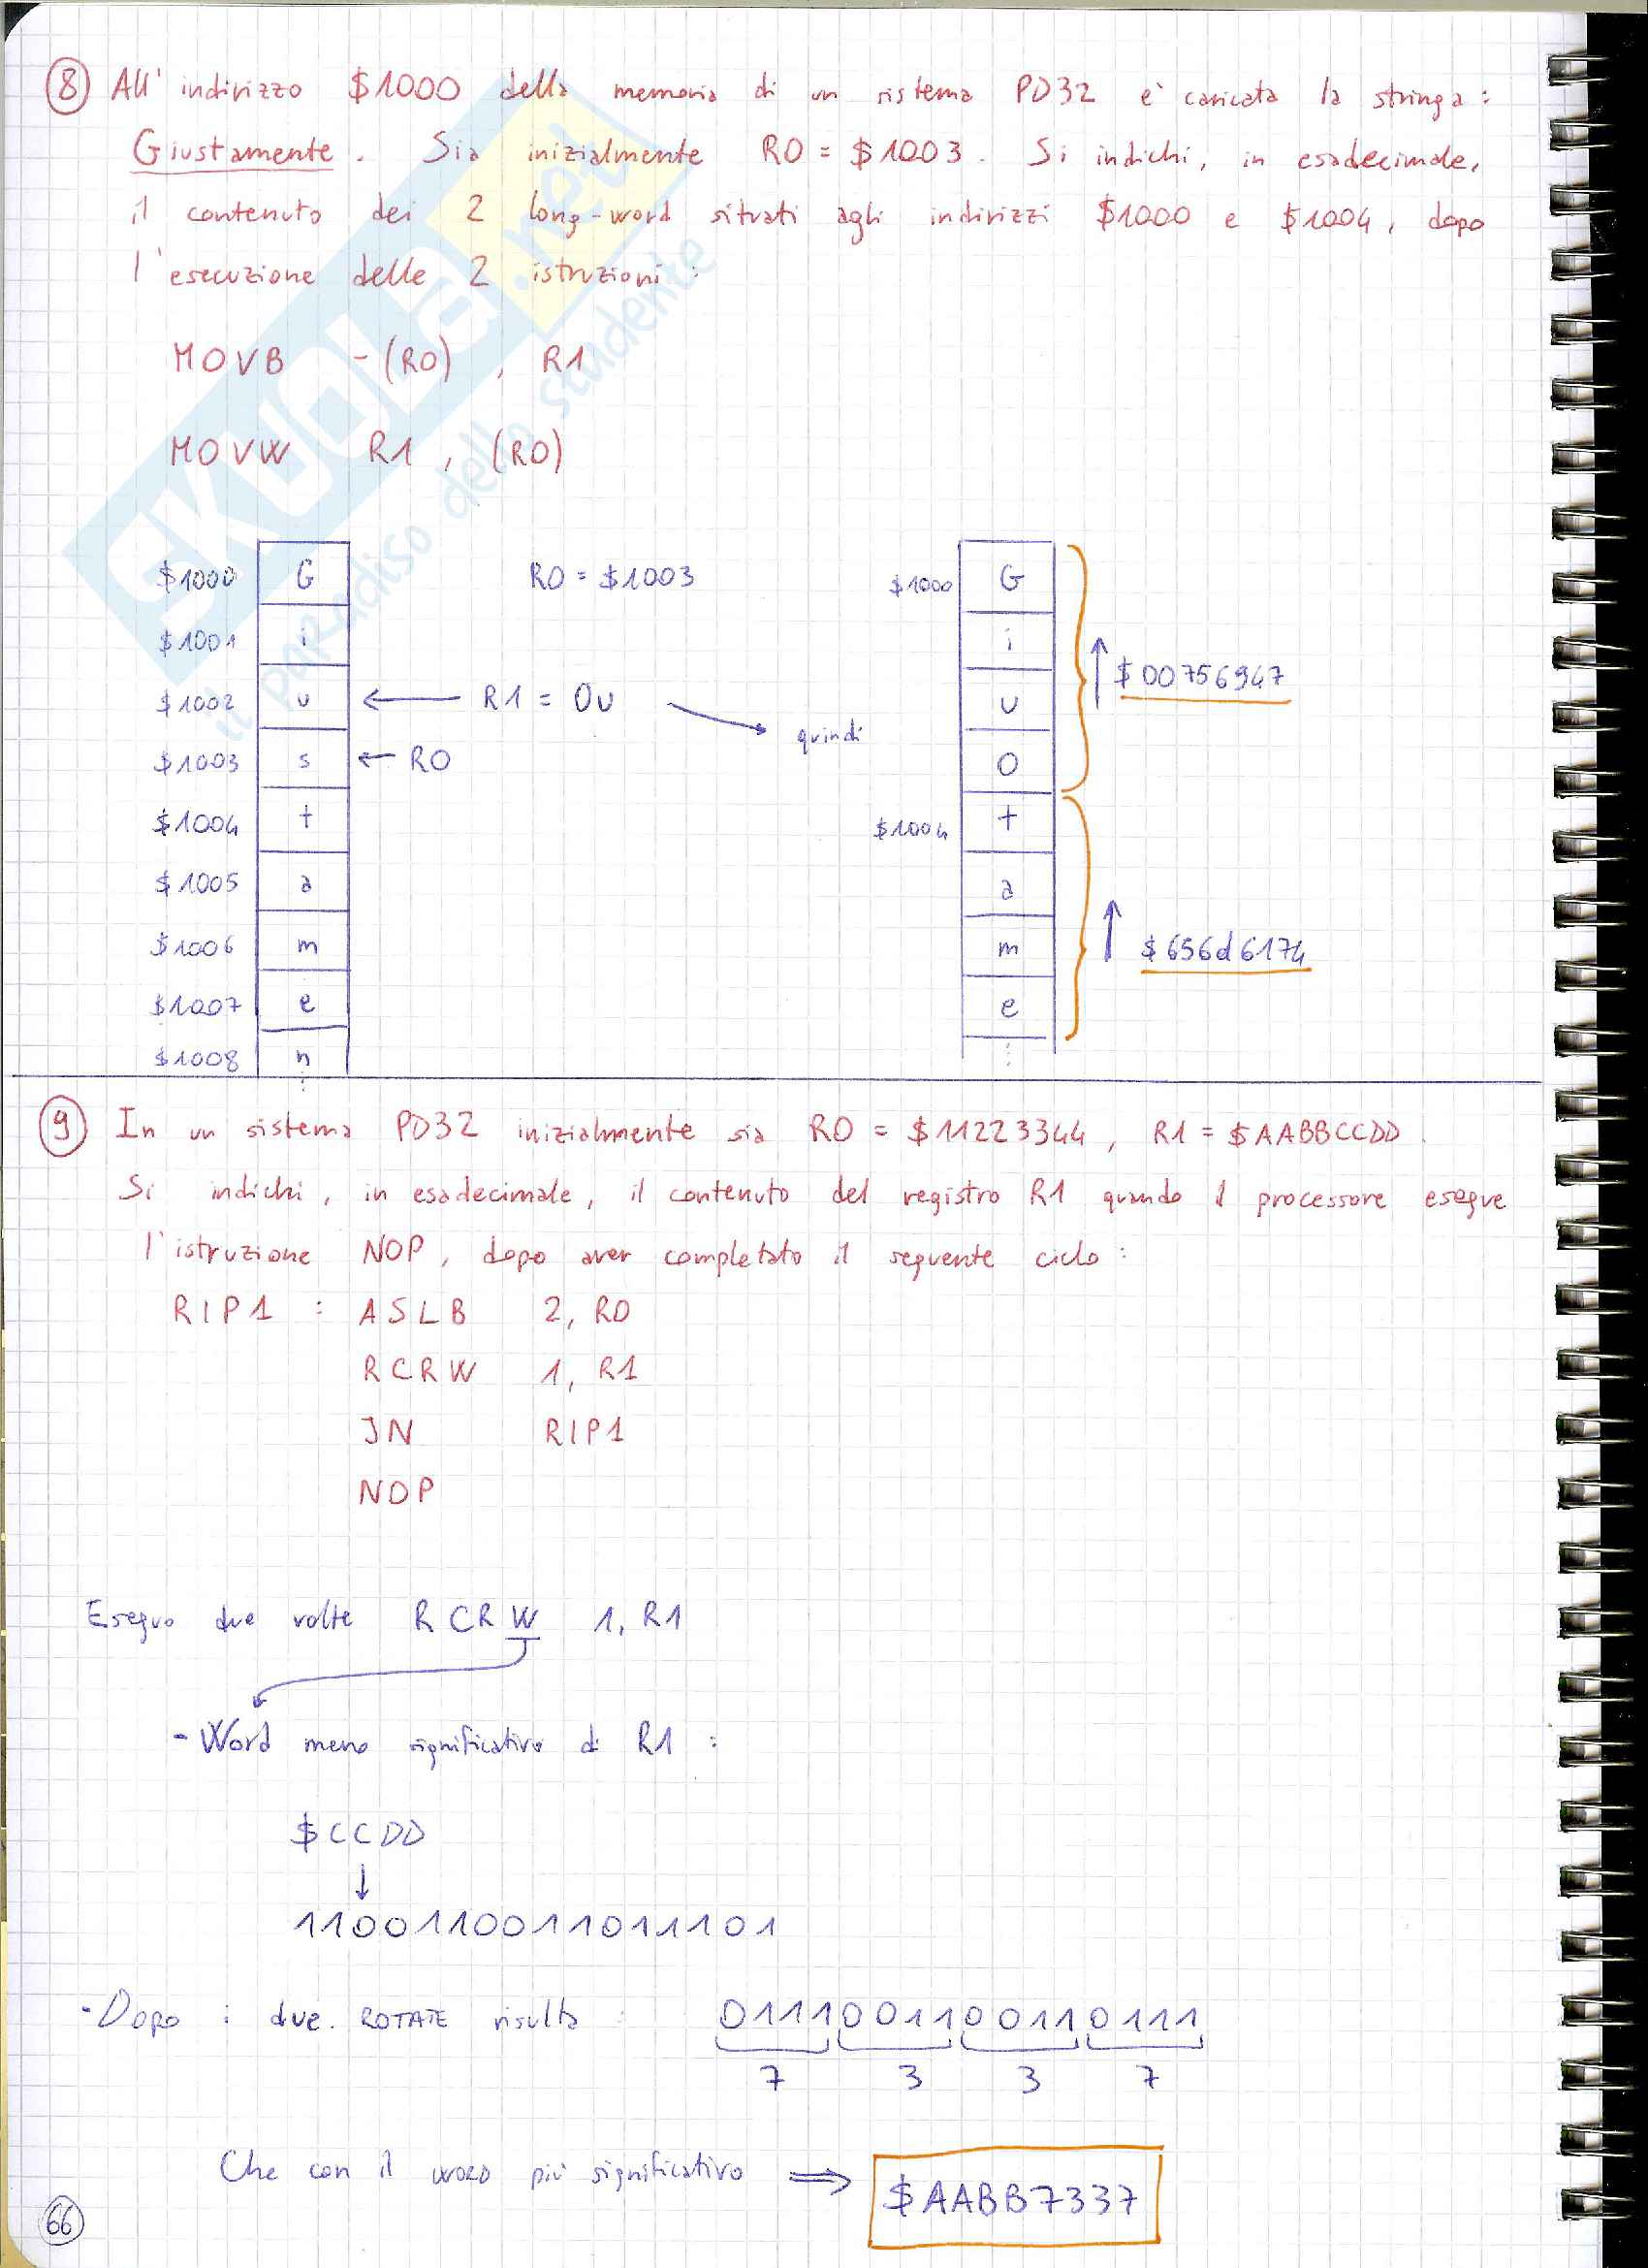 8 All' indirizzo $1000 della memoria di un sistema PD32 è caricata la stringa :
Giustamente. Sia inizialmente R0 = $1003. Si indichi, in esadecimale,
il contenuto dei 2 long-word situati agli indirizzi $1000 e $1004, dopo
l'esecuzione delle 2 istruzioni :
MOVB -(R0) , R1
MOVW R1 , (R0)
$1000 G R0 = $1003 $1000 G
$1001 i i
$1002 u ← R1 = 0u quindi u $00756947
$1003 s ← R0 0
$1004 t $1004 t
$1005 a a
$1006 m m $656d6174
$1007 e e
$1008 n
9 In un sistema PD32 inizialmente sia R0 = $11223344, R1 = $AABBCCDD.
Si indichi, in esadecimale, il contenuto del registro R1 quando il processore esegue
l'istruzione NOP, dopo aver completato il seguente ciclo :
RIP1 : ASLB 2, R0
RCRW 1, R1
JN RIP1
NOP
Eseguo due volte RCRW 1, R1
- Word meno significativo di R1 :
$CCDD
↓
1100110011011101
- Dopo i due ROTATE risulta : 0111001100110111
7 3 3 7
Che con il WORD più significativo ⇒ $AABB7337
66
SKUOLA.net
il paradiso dello studente